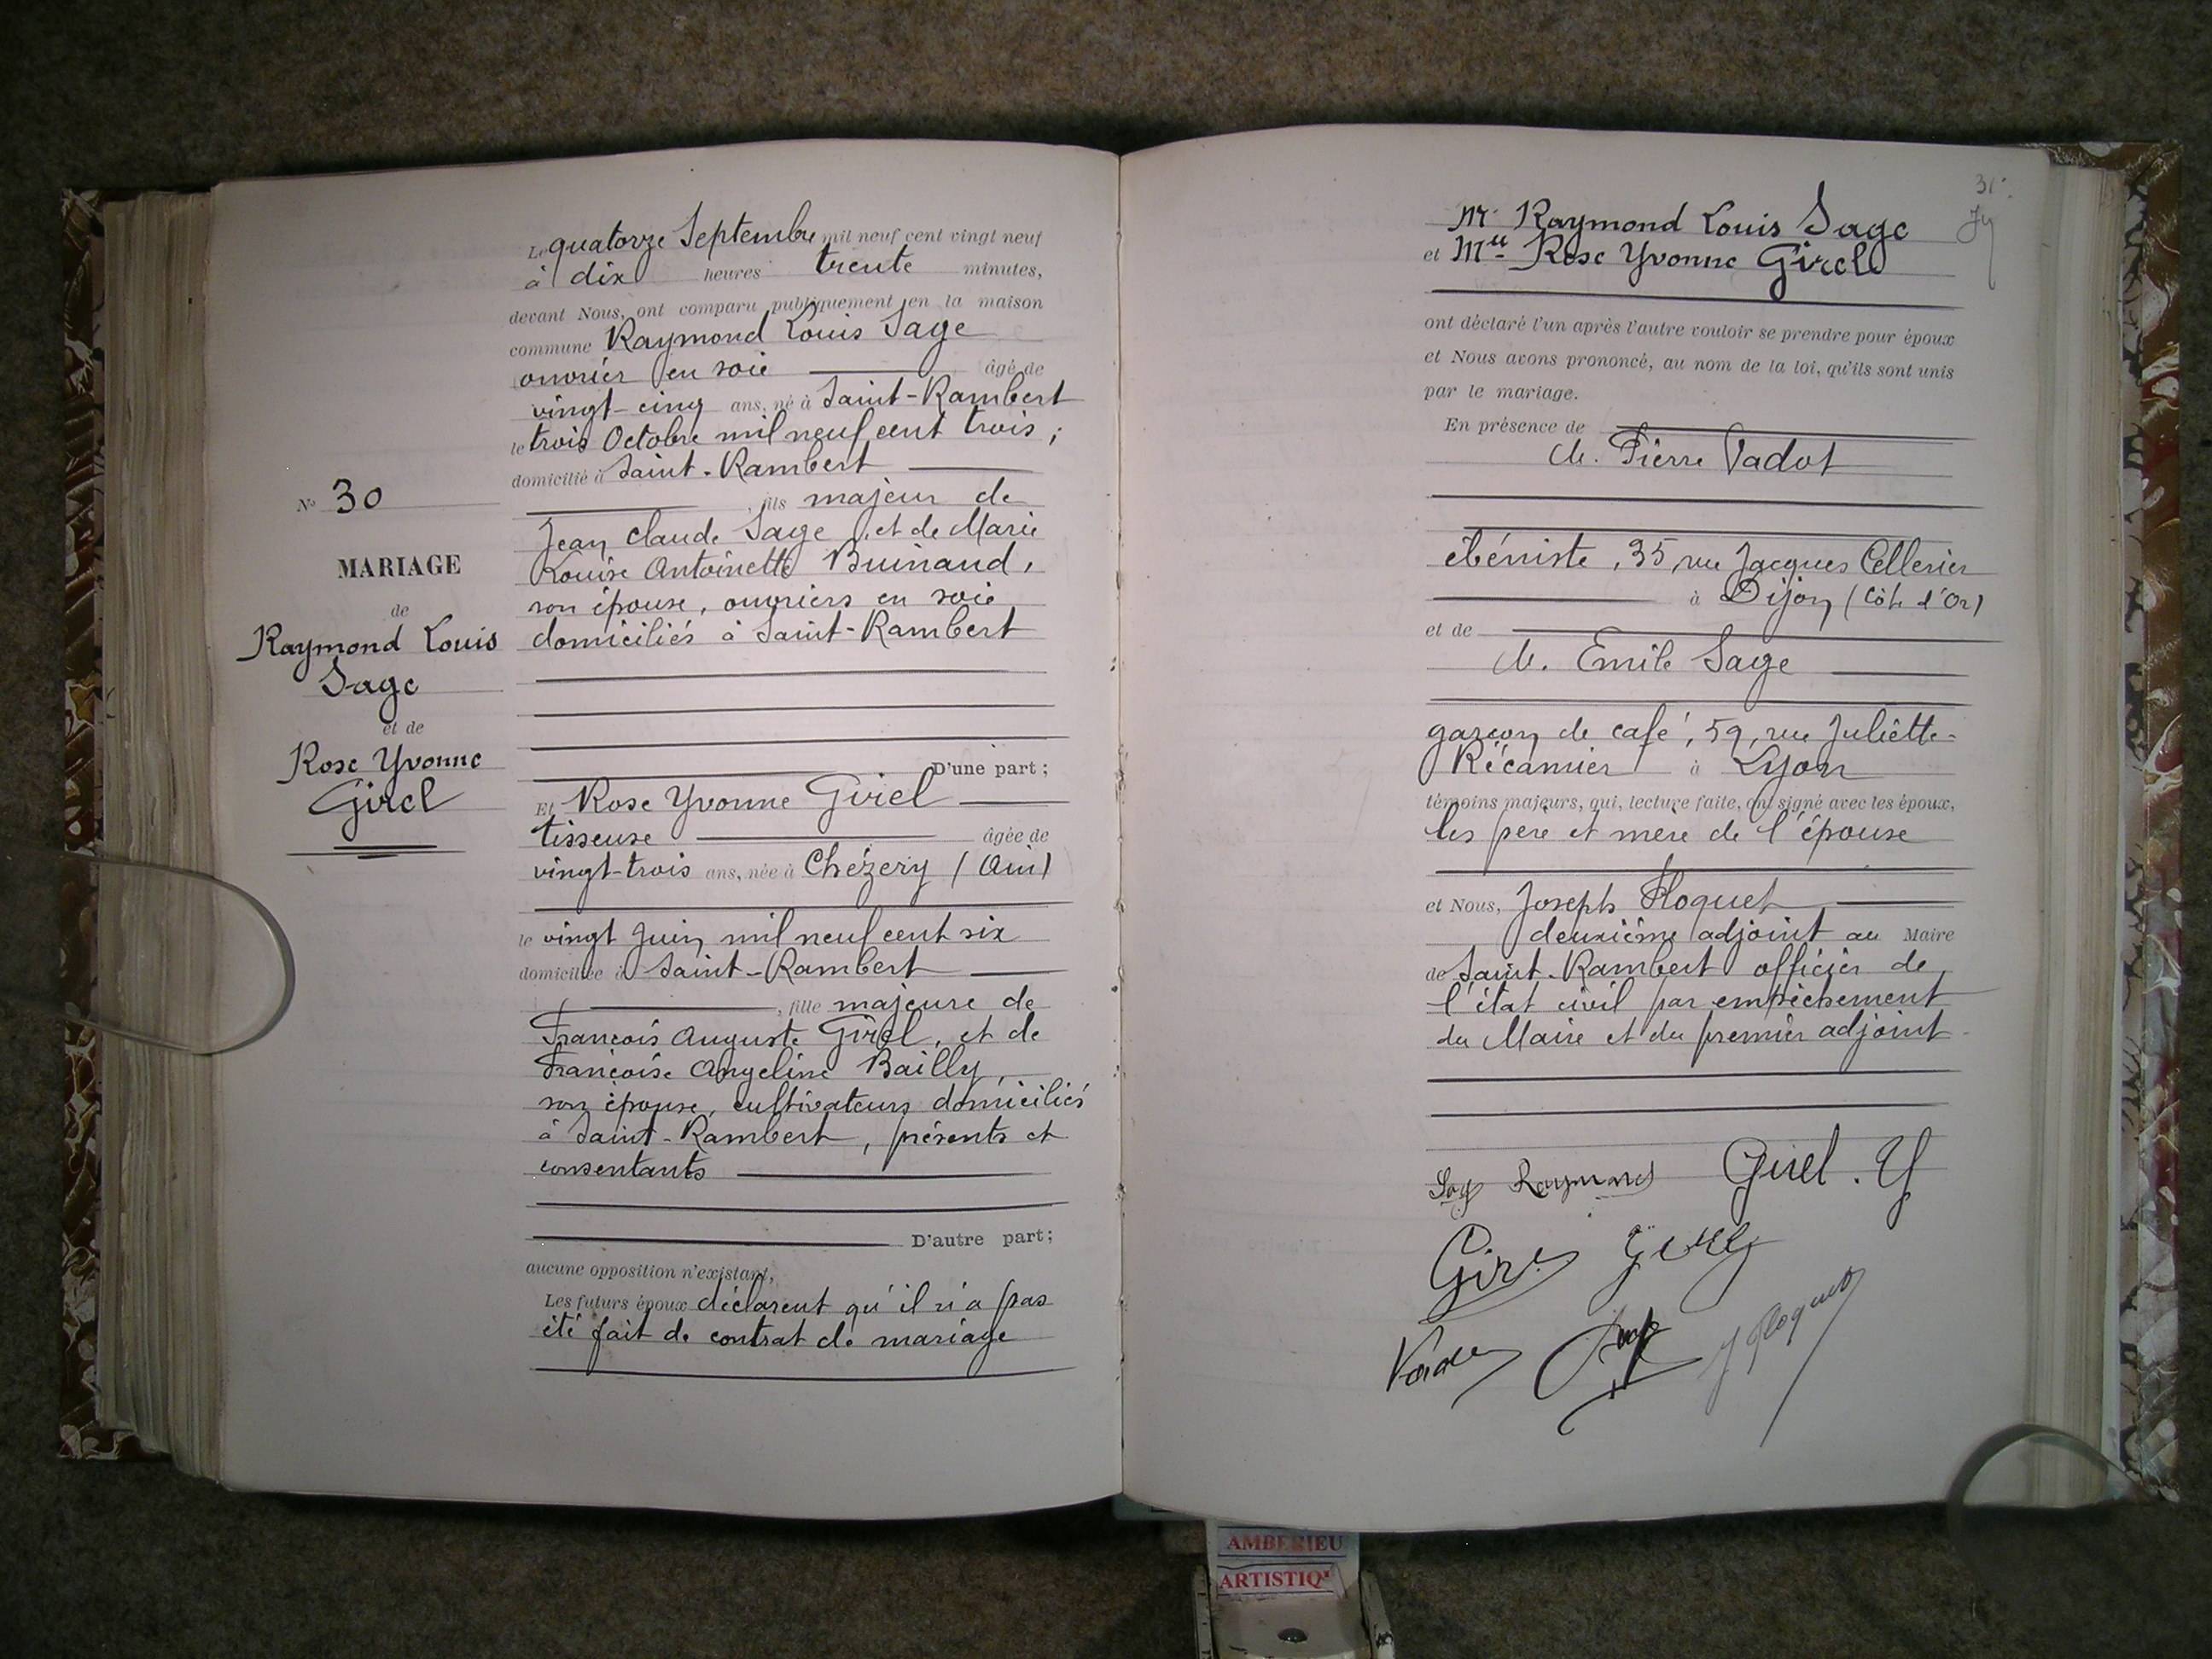 Le quatorze Septembre mil neuf cent vingt neuf
à dix heures trente minutes,
devant Nous, ont comparu publiquement en la maison
commune Raymond Louis Sage
ouvrier en soie âgé de
vingt-cinq ans, né à Saint-Rambert
le trois Octobre mil neuf cent trois ;
domicilié à Saint-Rambert
, fils majeur de
Jean Claude Sage, et de Marie
Louise Antoinette Buinand,
son épouse, ouvriers en soie
domiciliés à Saint-Rambert
D'une part ;
Et Rose Yvonne Girel
tisseuse âgée de
vingt-trois ans, née à Chézery (Ain)
le vingt Juin mil neuf cent six
domiciliée à Saint-Rambert
, fille majeure de
François Auguste Girel, et de
Françoise Angeline Bailly,
son épouse, cultivateurs domiciliés
à Saint-Rambert, présents et
consentants
D'autre part ;
aucune opposition n'existant,
Les futurs époux déclarent qu'il n'a pas
été fait de contrat de mariage
N° 30
MARIAGE
de
Raymond Louis
Sage
et de
Rose Yvonne
Girel
31
Mr Raymond Louis Sage
et Mlle Rose Yvonne Girel
ont déclaré l'un après l'autre vouloir se prendre pour époux
et Nous avons prononcé, au nom de la loi, qu'ils sont unis
par le mariage.
En présence de
M. Pierre Vadot
ébéniste, 35, rue Jacques Cellerier
à Dijon (Côte d'Or)
et de
M. Emile Sage
garçon de café, 59, rue Juliette-
Récamier à Lyon
témoins majeurs, qui, lecture faite, ont signé avec les époux,
les père et mère de l'épouse
et Nous, Joseph Floquet
deuxième adjoint au Maire
de Saint-Rambert officier de
l'état civil par empêchement
du Maire et du premier adjoint
Sage Raymond Girel. Y
Girel Girel
Vadot J Floquet
AMBERIEU
ARTISTIQ